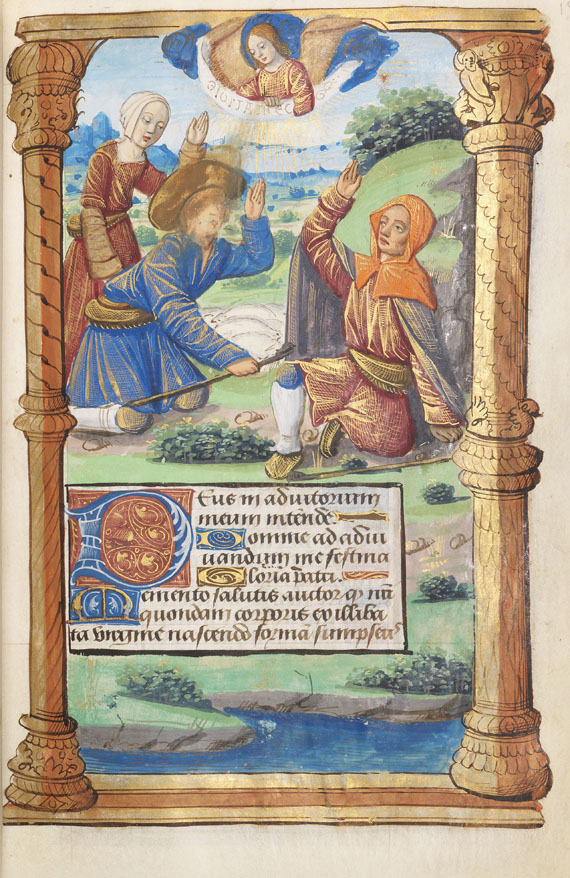 Gloria in exc
Deus in adiutorium
meum intende.
Domine ad adiu
uandum me festina
Gloria patri.
Memento salutis auctor qꝫ nr̄i
quondam corporis ex illiba
ta virgine nascendo formā sumpseris